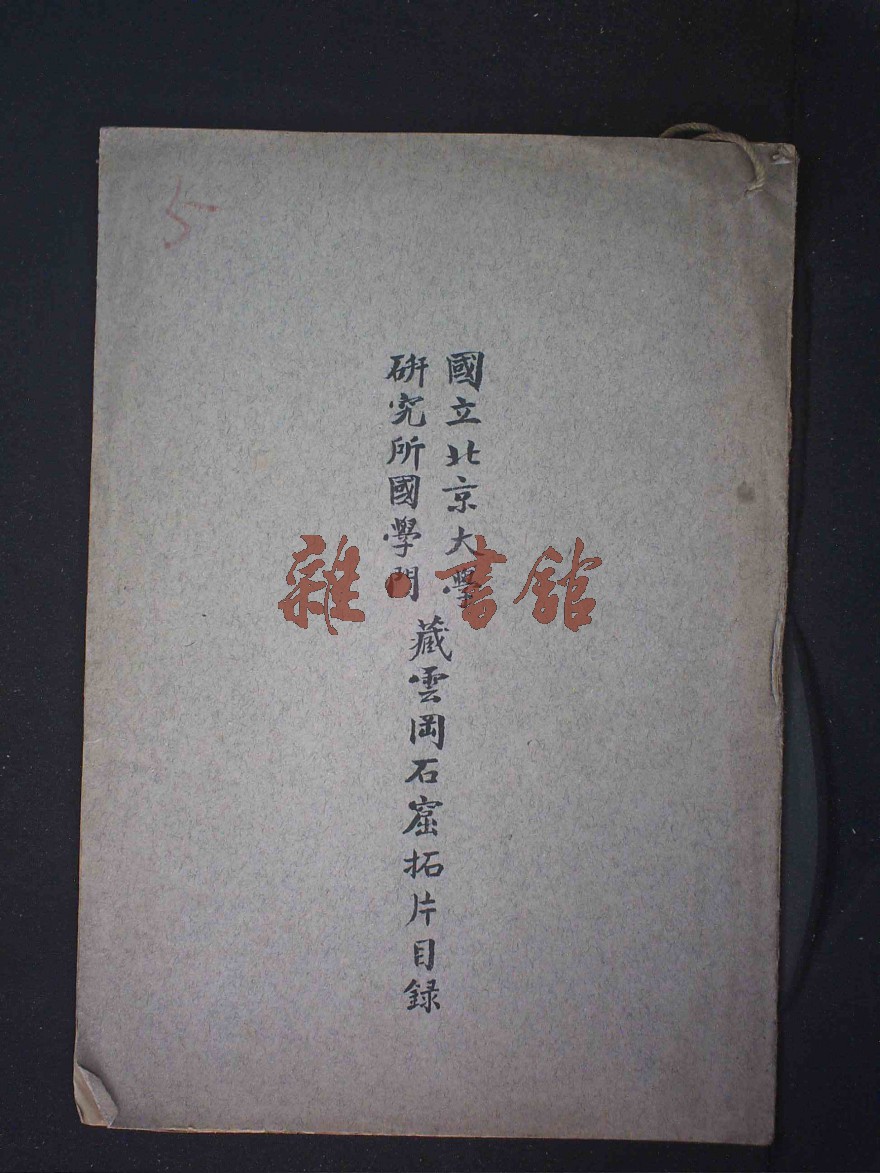 國立北京大學
研究所國學門
藏雲岡石窟拓片目録
5
雜·書館